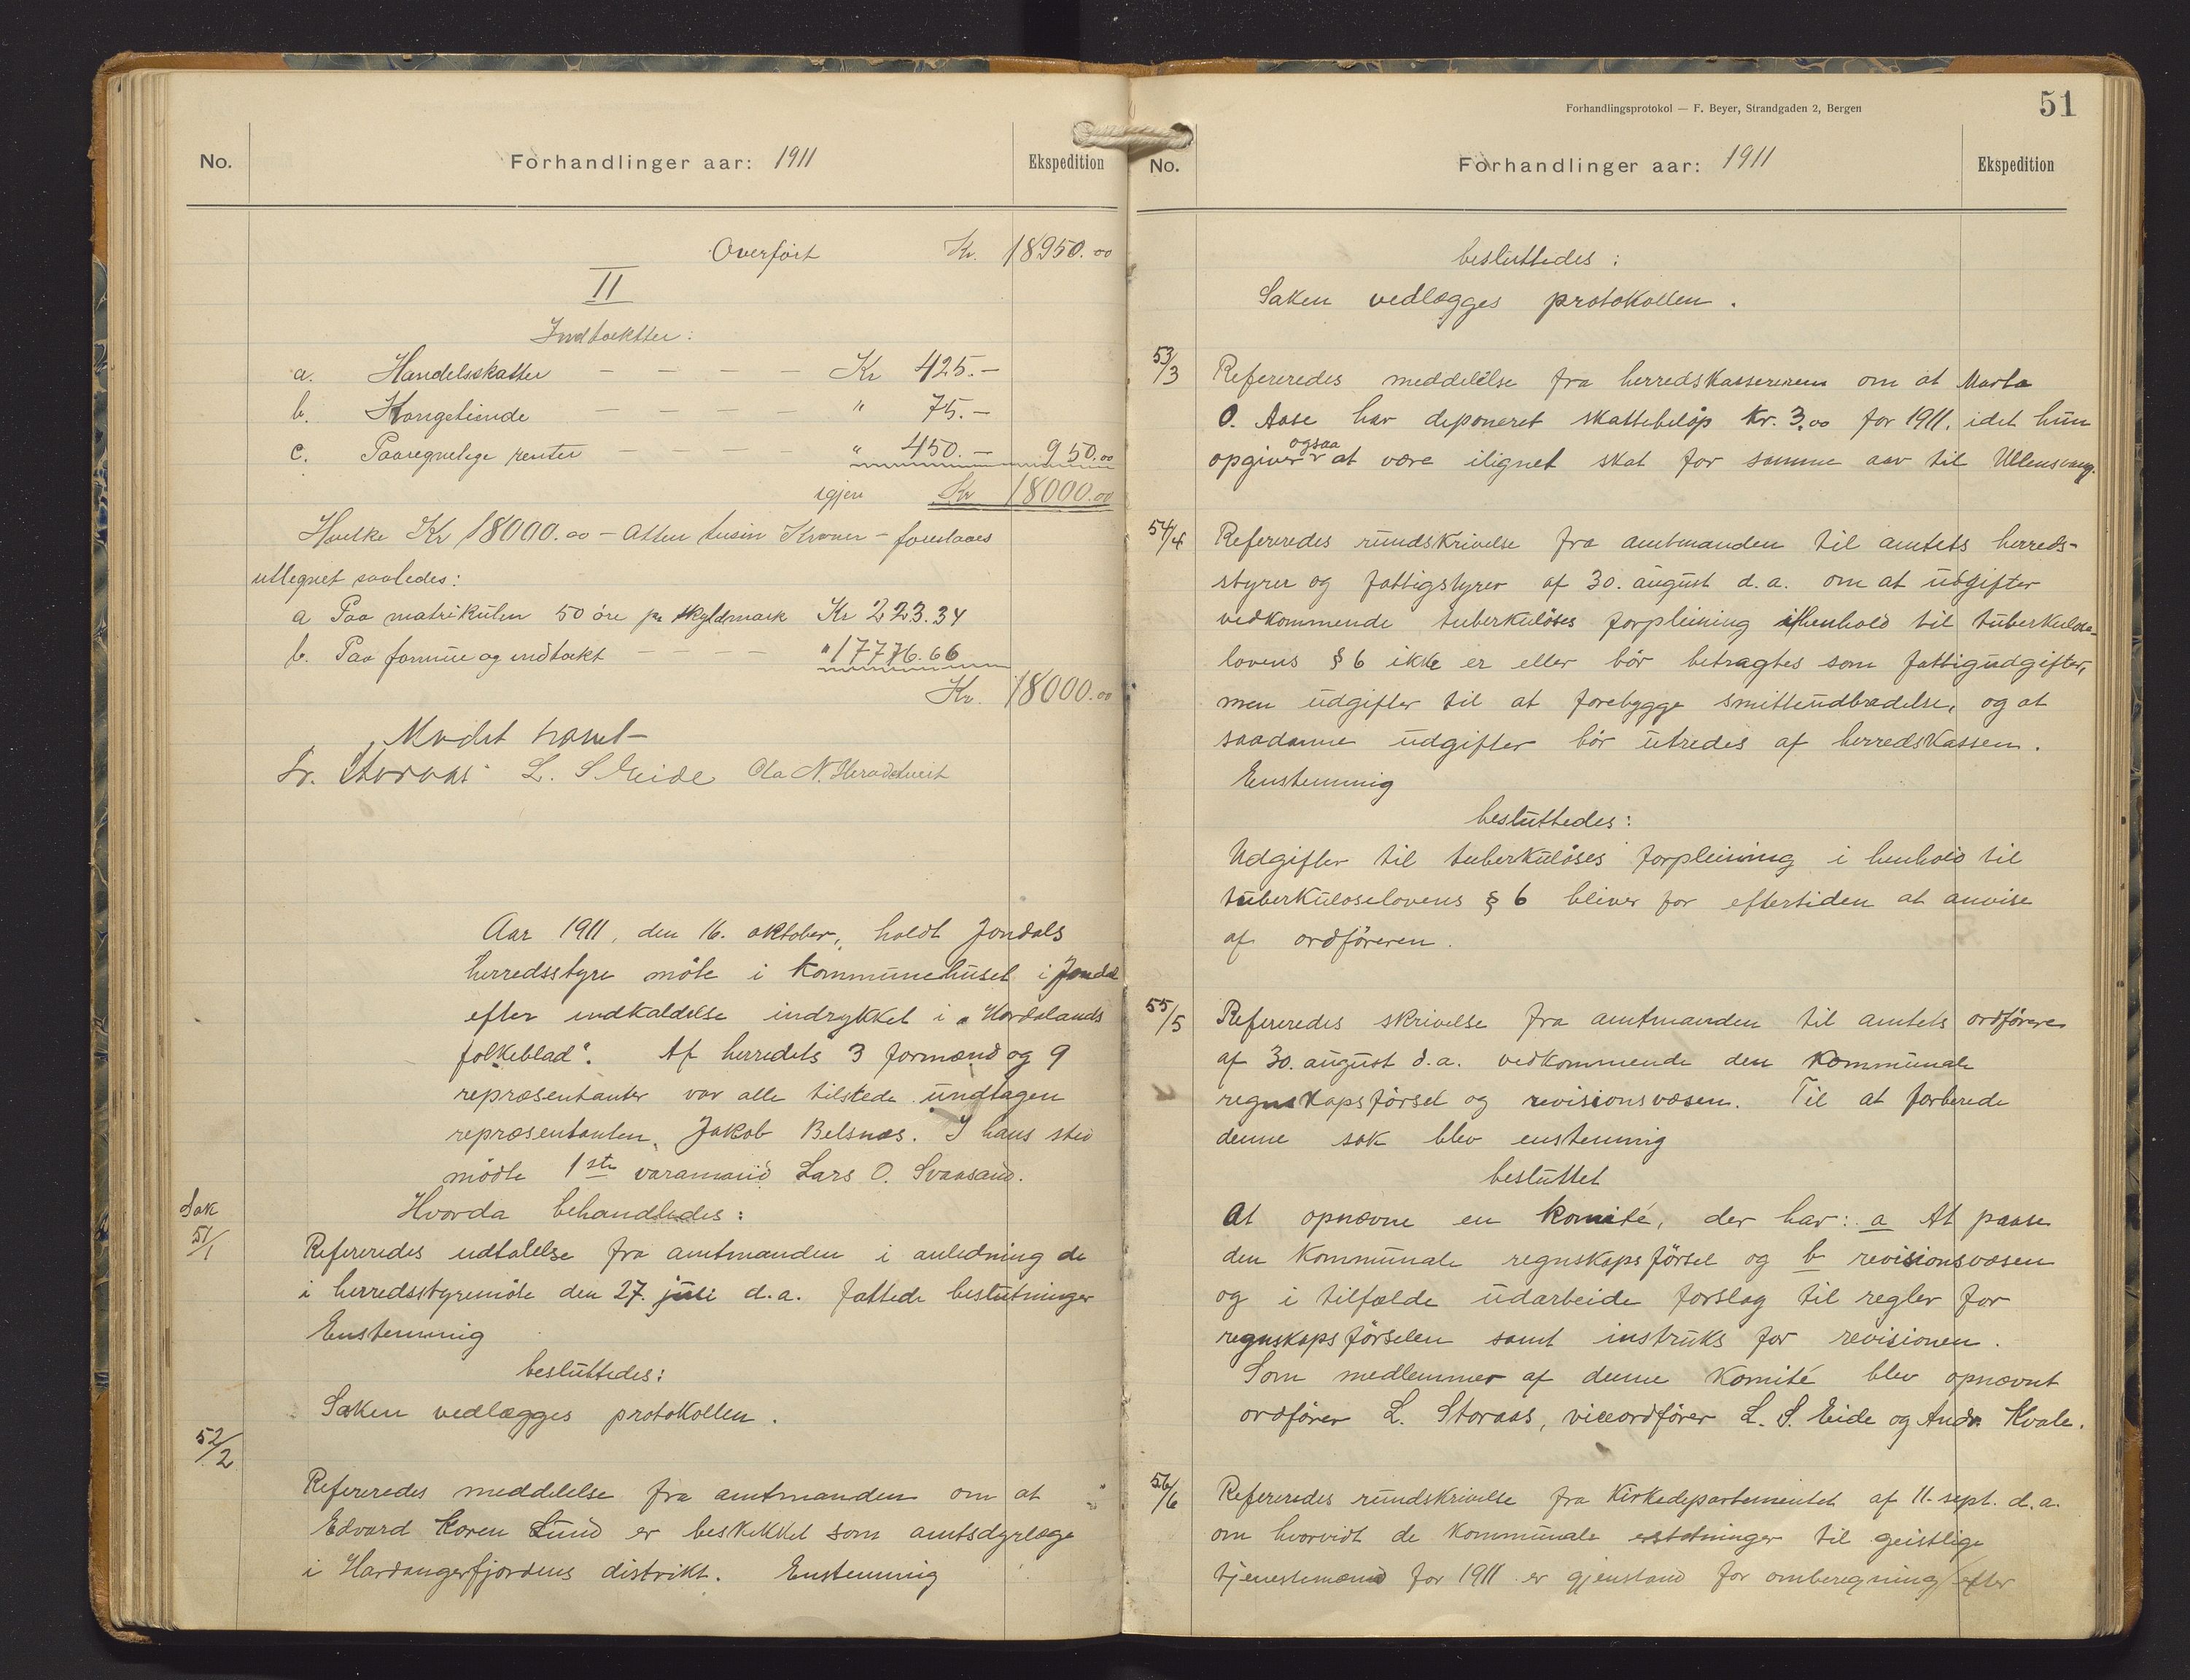 No. Forhandlinger aar: 1911 Ekspedition
Overført Kr. 18950.00
II
Indtækter:
a. Handelsskatter — — — — Kr 425.—
b. Kongetiende — — — — " 75.—
c. Paaregnelige renter — — — — " 450.— 950.00
igjen Kr 18000.00
Hvilke Kr 18000.00 – Atten tusin Kroner – foreslaaes
utlegnet saaledes:
a Paa matrikulen 50 öre pr skyldmark Kr 223.34
b. Paa formue og indtækt — — — — " 17776.66
Kr. 18000.00
Mødet hævet
Lr. Storaas L. S Eide Ola N. Heradstveit
Aar 1911, den 16. oktober, holdt Jondals
herredsstyre møte i kommunehuset i Jondal
efter indkaldelse indrykket i „Hordalands
folkeblad“. Af herredets 3 formænd og 9
repræsentanter var alle tilstede undtagen
repræsentanten Jakob Belsnæs. I hans sted
mödte 1ste varamand Lars O. Svaasand.
Hvorda behandledes:
Sak
51/1 Refereredes udtalelse fra amtmanden i anledning de
i herredsstyremöte den 27. juli d.a. fattede beslutninger
Enstemmig
besluttedes:
Saken vedlægges protokollen.
52/2
Refereredes meddelelse fra amtmanden om at
Edvard Koren Lund er beskikket som amtsdyrlæge
i Hardangerfjordens distrikt. Enstemmig
Forhandlingsprotokol — F. Beyer, Strandgaden 2, Bergen
51
No. Forhandlinger aar: 1911 Ekspedition
besluttedes:
Saken vedlægges protokollen.
53/3 Refereredes meddelelse fra herredskassereren om at Marta
O. Aase har deponeret skattebeløp kr. 3.00 for 1911, idet hun
ogsaa
opgiver at være ilignet skat for samme aar til Ullensvang.
54/4 Refereredes rundskrivelse fra amtmanden til amtets herreds-
styrer og fattigstyrer af 30. august d.a. om at udgifter
vedkommende tuberkuløses forpleining i henhold til tuberkulose-
lovens § 6 ikke er eller bør betragtes som fattigudgifter,
men udgifter til at forebygge smitteudbredelse, og at
saadanne udgifter bør utredes af herredskassen.
Enstemmig
besluttedes:
Udgifter til tuberkuløses forpleining i henhold til
tuberkuloselovens § 6 bliver for eftertiden at anvise
af ordføreren.
55/5 Refereredes skrivelse fra amtmanden til amtets ordførere
af 30. august d.a. vedkommende den kommunale
regnskapsførsel og revisionsvæsen. Til at forberede
denne sak blev enstemmig
besluttet
At opnævne en komité, der har: a At paase
den kommunale regnskapsførsel og b revisionsvæsen
og i tilfælde udarbeide forslag til regler for
regnskapsførselen samt instruks for revisionen.
Som medlemmer af denne komité blev opnævnt
ordfører L. Storaas, viceordfører L. S. Eide og Andr. Kvale.
56/6 Refereredes rundskrivelse fra Kirkedepartementet af 11. sept. d.a.
om hvorvidt de kommunale erstatninger til geistlige
tjenestemænd for 1911 er gjenstand for omberegning efter